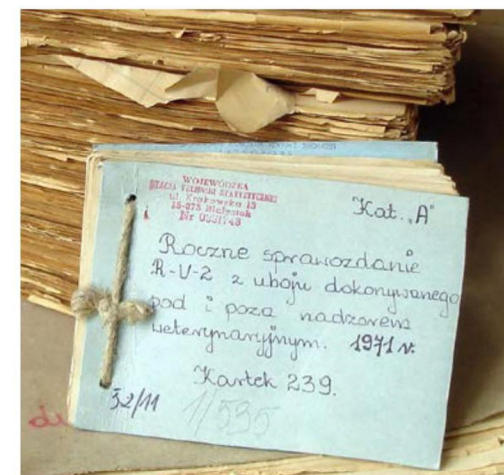 WOJEWÓDZKA
ul. Krakowska 13
Białystok
Kat. „A"
Roczne sprawozdanie
R-U-2 z uboju dokonywanego
pod i poza nadzorem
weterynaryjnym. 1971 r.
Kartek 239.
32/11
1/535